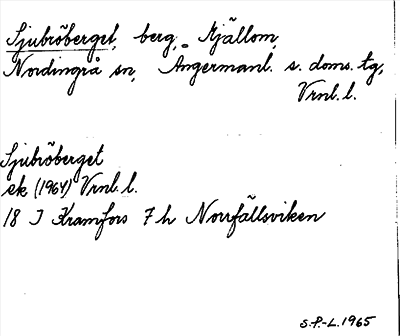 Sjubröberget, berg, Mjällom,
Nordingrå sn, Ångermanl. s. doms. tg,
Vrnl. l.
Sjubröberget
ek (1964) Vrnl. l.
18 I Kramfors 7 h Norrfällsviken
S.P.-L. 1965